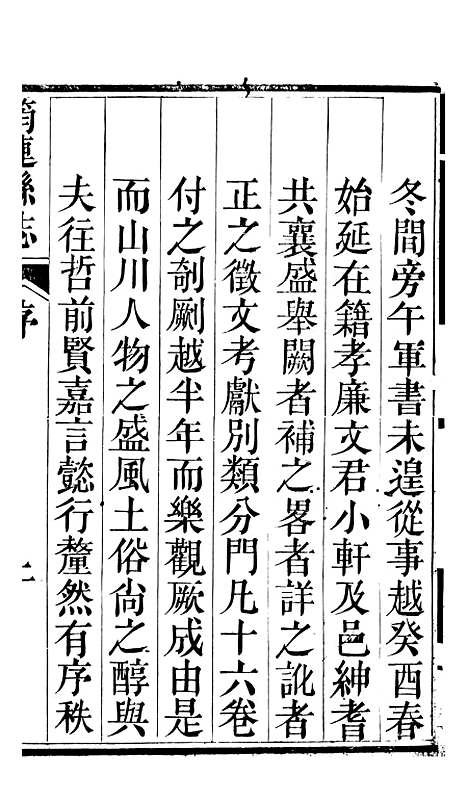 冬間旁午軍書未遑從事越癸酉春
始延在籍孝廉文君小軒及邑紳耆
共襄盛舉闕者補之畧者詳之訛者
正之徵文考獻別類分門凡十六卷
付之剞劂越半年而樂觀厥成由是
而山川人物之盛風土俗尚之醇與
夫往哲前賢嘉言懿行釐然有序秩
筠連縣志
序